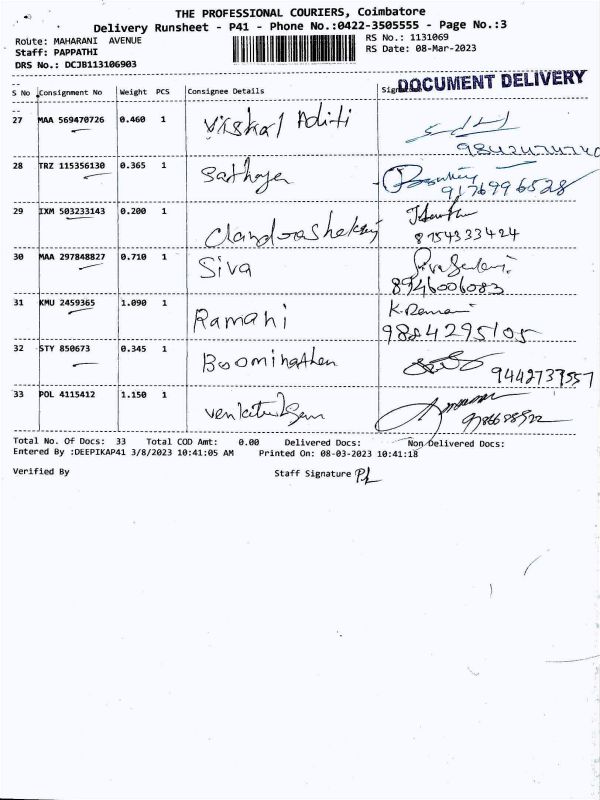 THE PROFESSIONAL COURIERS, Coimbatore
Delivery Runsheet - P41 - Phone No.:0422-3505555 - Page No.:3
Route: MAHARANI AVENUE
RS No.: 1131069
Staff: PAPPATHI
RS Date: 08-Mar-2023
DRS No.: DCJB113106903
DOCUMENT DELIVERY
S No Consignment No Weight PCS Consignee Details
27 MAA 569470726 0.460 1 Aditi
28 TRZ 115356130 0.365 1 Sathya
9176996528
29 IXM 503233143 0.200 1 Chandrashekar
8754333424
30 MAA 297848827 0.710 1 Siva
8946006083
31 KMU 2459365 1.090 1 Ramani K.Ramani
9884295105
32 STY 850673 0.345 1 Boominathan
9442737557
33 POL 4115412 1.150 1
Total No. Of Docs: 33 Total COD Amt: 0.00 Delivered Docs: Non Delivered Docs:
Entered By :DEEPIKAP41 3/8/2023 10:41:05 AM Printed On: 08-03-2023 10:41:18
Verified By Staff Signature